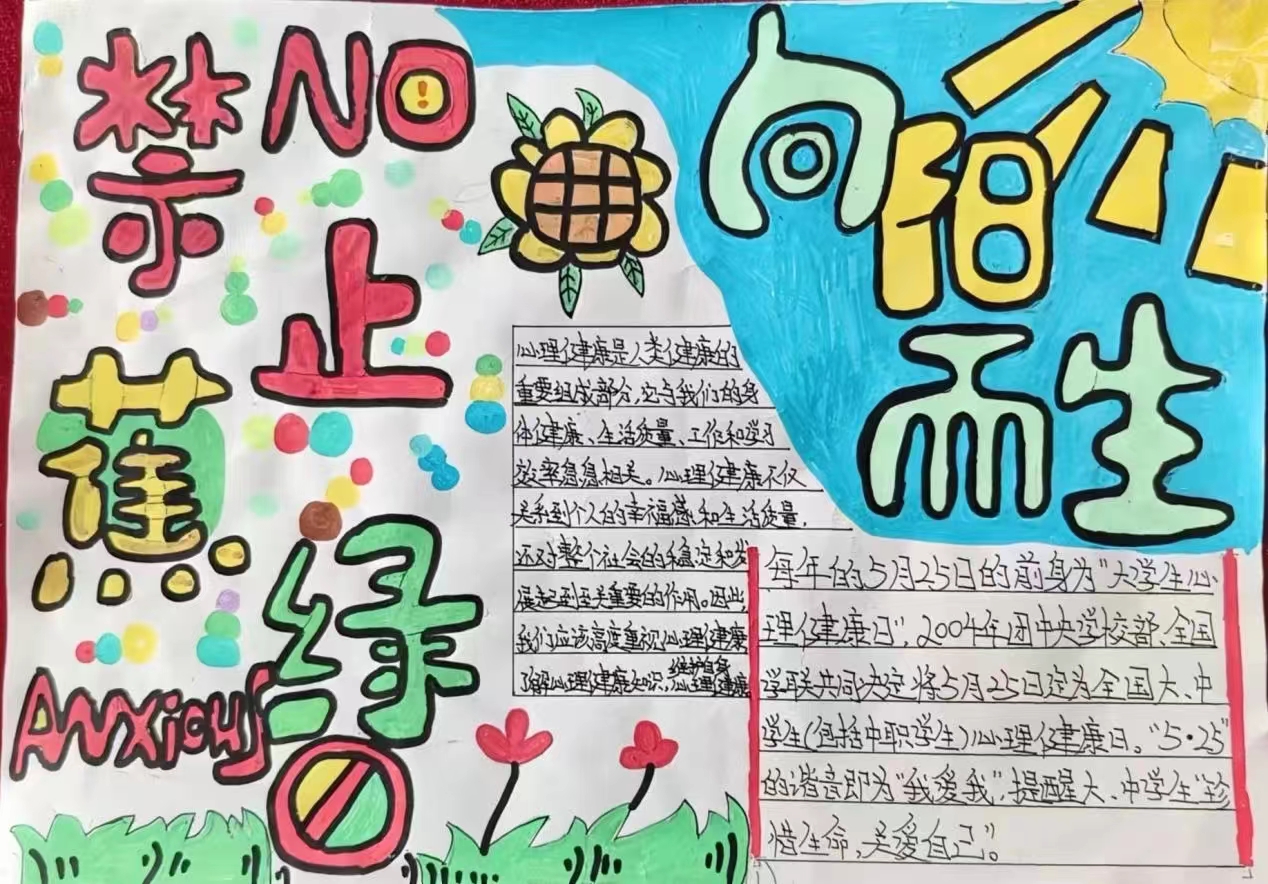 禁止
NO
蕉绿
Anxious
向阳
而生
心理健康是人类健康的
重要组成部分,它与我们的身
体健康、生活质量、工作和学习
效率息息相关。心理健康不仅
关系到个人的幸福感和生活质量,
还对整个社会的稳定和发
展起到至关重要的作用。因此
我们应该高度重视心理健康
了解心理健康知识,维护自身心理健康
每年的5月25日的前身为“大学生心
理健康日”,2004年团中央学校部、全国
学联共同决定将5月25日定为全国大、中
学生(包括中职学生)心理健康日。“5·25”
的谐音即为“我爱我”,提醒大、中学生“珍
惜生命,关爱自己”。